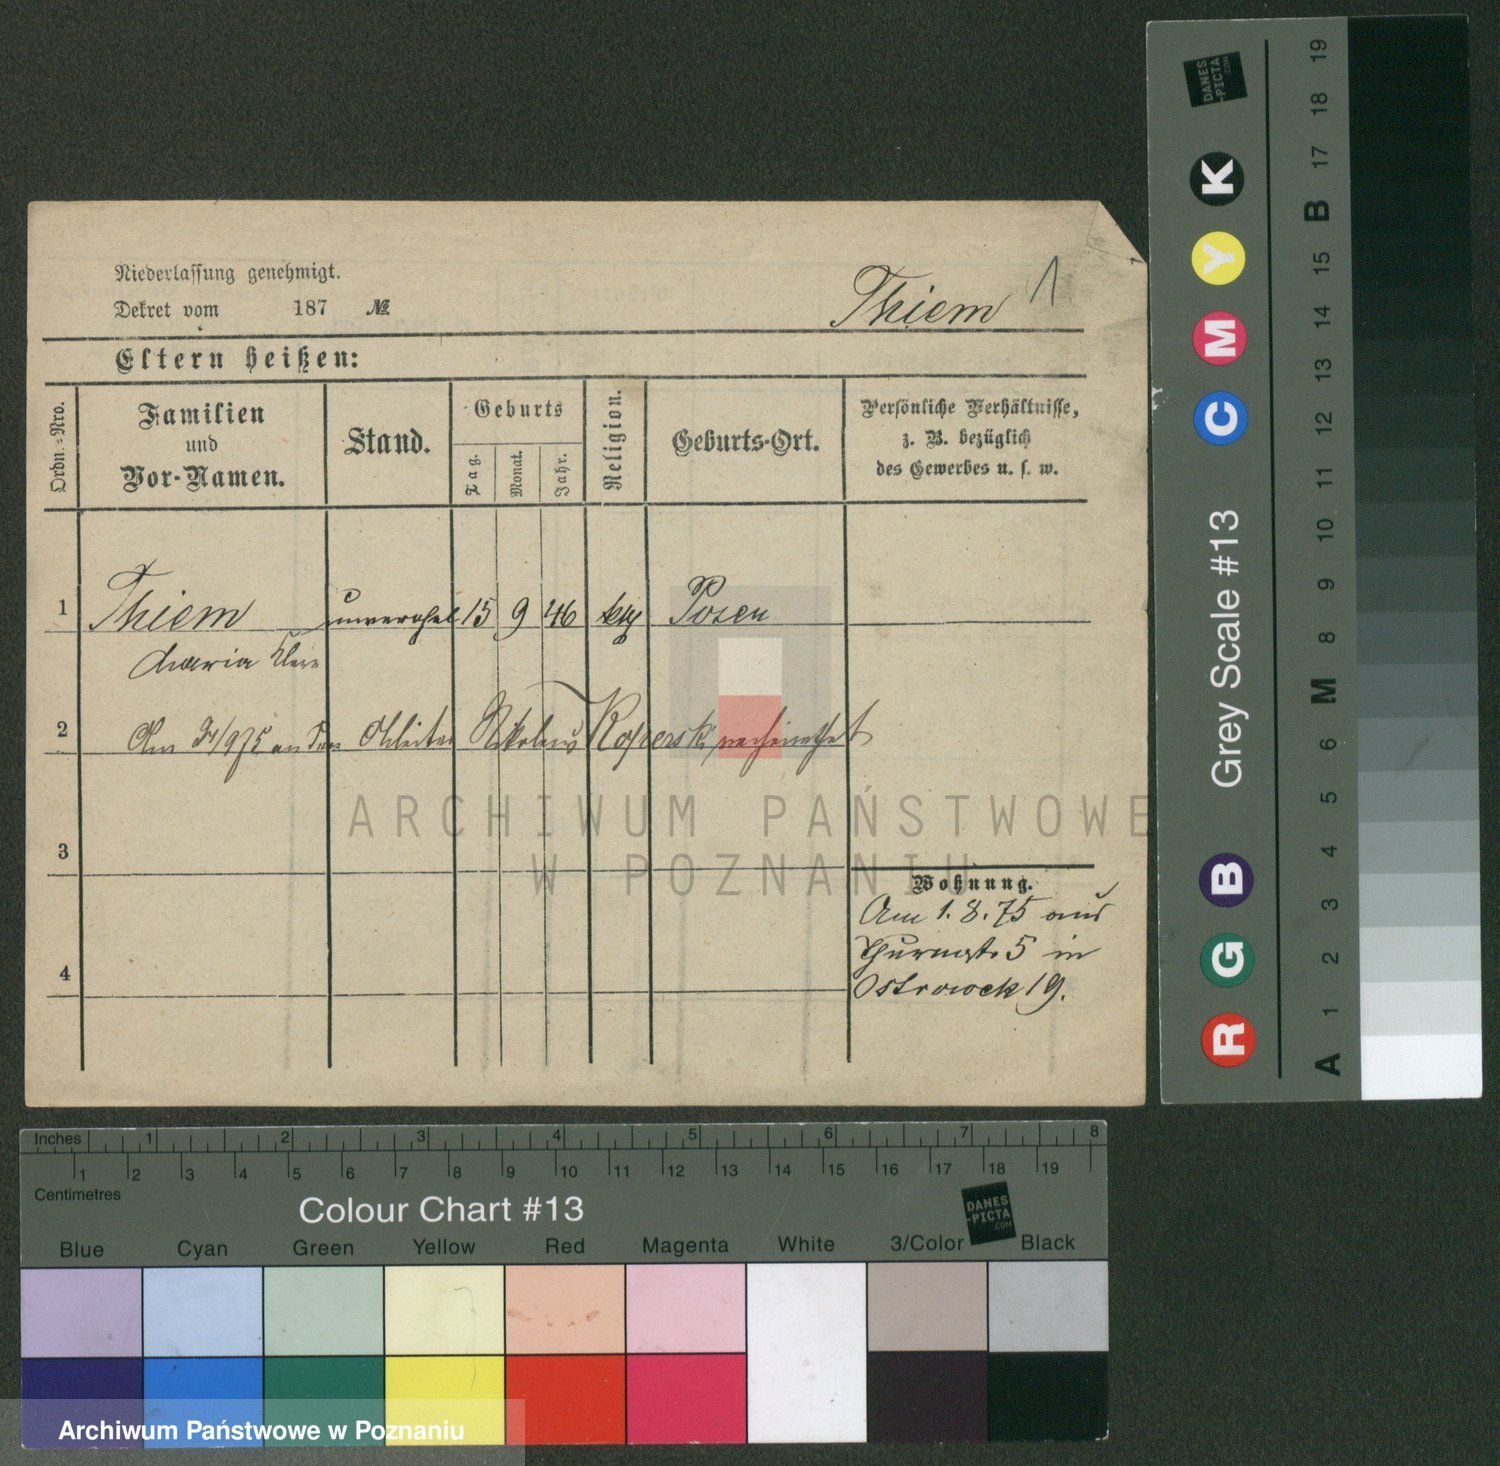 Niederlassung genehmigt.
Dekret vom 187 №
Thiem 1
Eltern heißen:
Ordn.=Nro.
Familien
und
Vor-Namen.
Stand.
Geburts
Tag.
Monat.
Jahr.
Religion.
Geburts-Ort.
Persönliche Verhältnisse,
z. B. bezüglich
des Gewerbes u. s. w.
1 Thiem 15 9 46 Posen
Maria
2 Am an den Nikolaus verheirathet
3
4
Wohnung.
Am 1.8.75 aus
5 in
Ostrowek 19.
ARCHIWUM PAŃSTWOWE
W POZNANIU
DANES
-PICTA
.COM
K Y M C
Grey Scale #13
B G R
19 18 17 B 15 14 13 12 11 10 9 8 M 6 5 4 3 2 1 A
Inches 1 2 3 4 5 6 7 8
1 2 3 4 5 6 7 8 9 10 11 12 13 14 15 16 17 18 19
Centimetres
Colour Chart #13
DANES
-PICTA
.COM
Blue Cyan Green Yellow Red Magenta White 3/Color Black
Archiwum Państwowe w Poznaniu